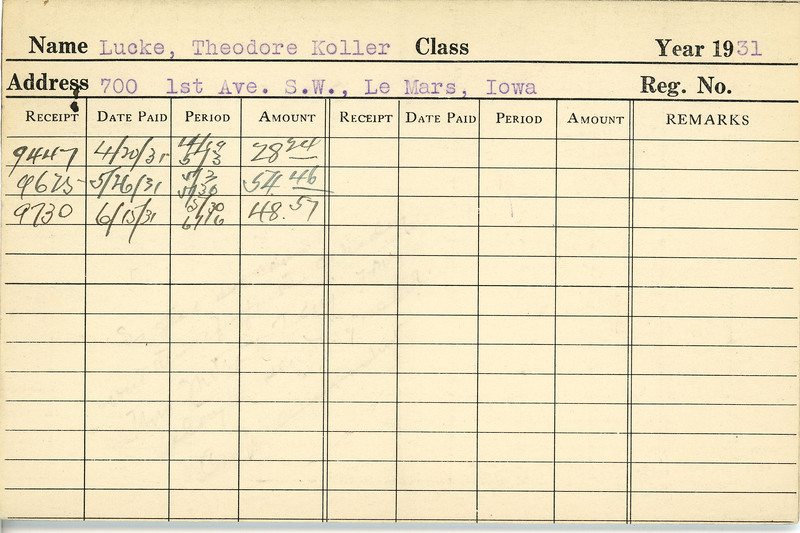 Name Lucke, Theodore Koller Class Year 1931
Address 700 1st Ave. S.W., Le Mars, Iowa Reg. No.
RECEIPT DATE PAID PERIOD AMOUNT RECEIPT DATE PAID PERIOD AMOUNT REMARKS
9447 4/20/31 4/19 5/3 28.24
9675 5/26/31 5/3 5/30 54.46
9730 6/15/31 5/30 6/16 48.57